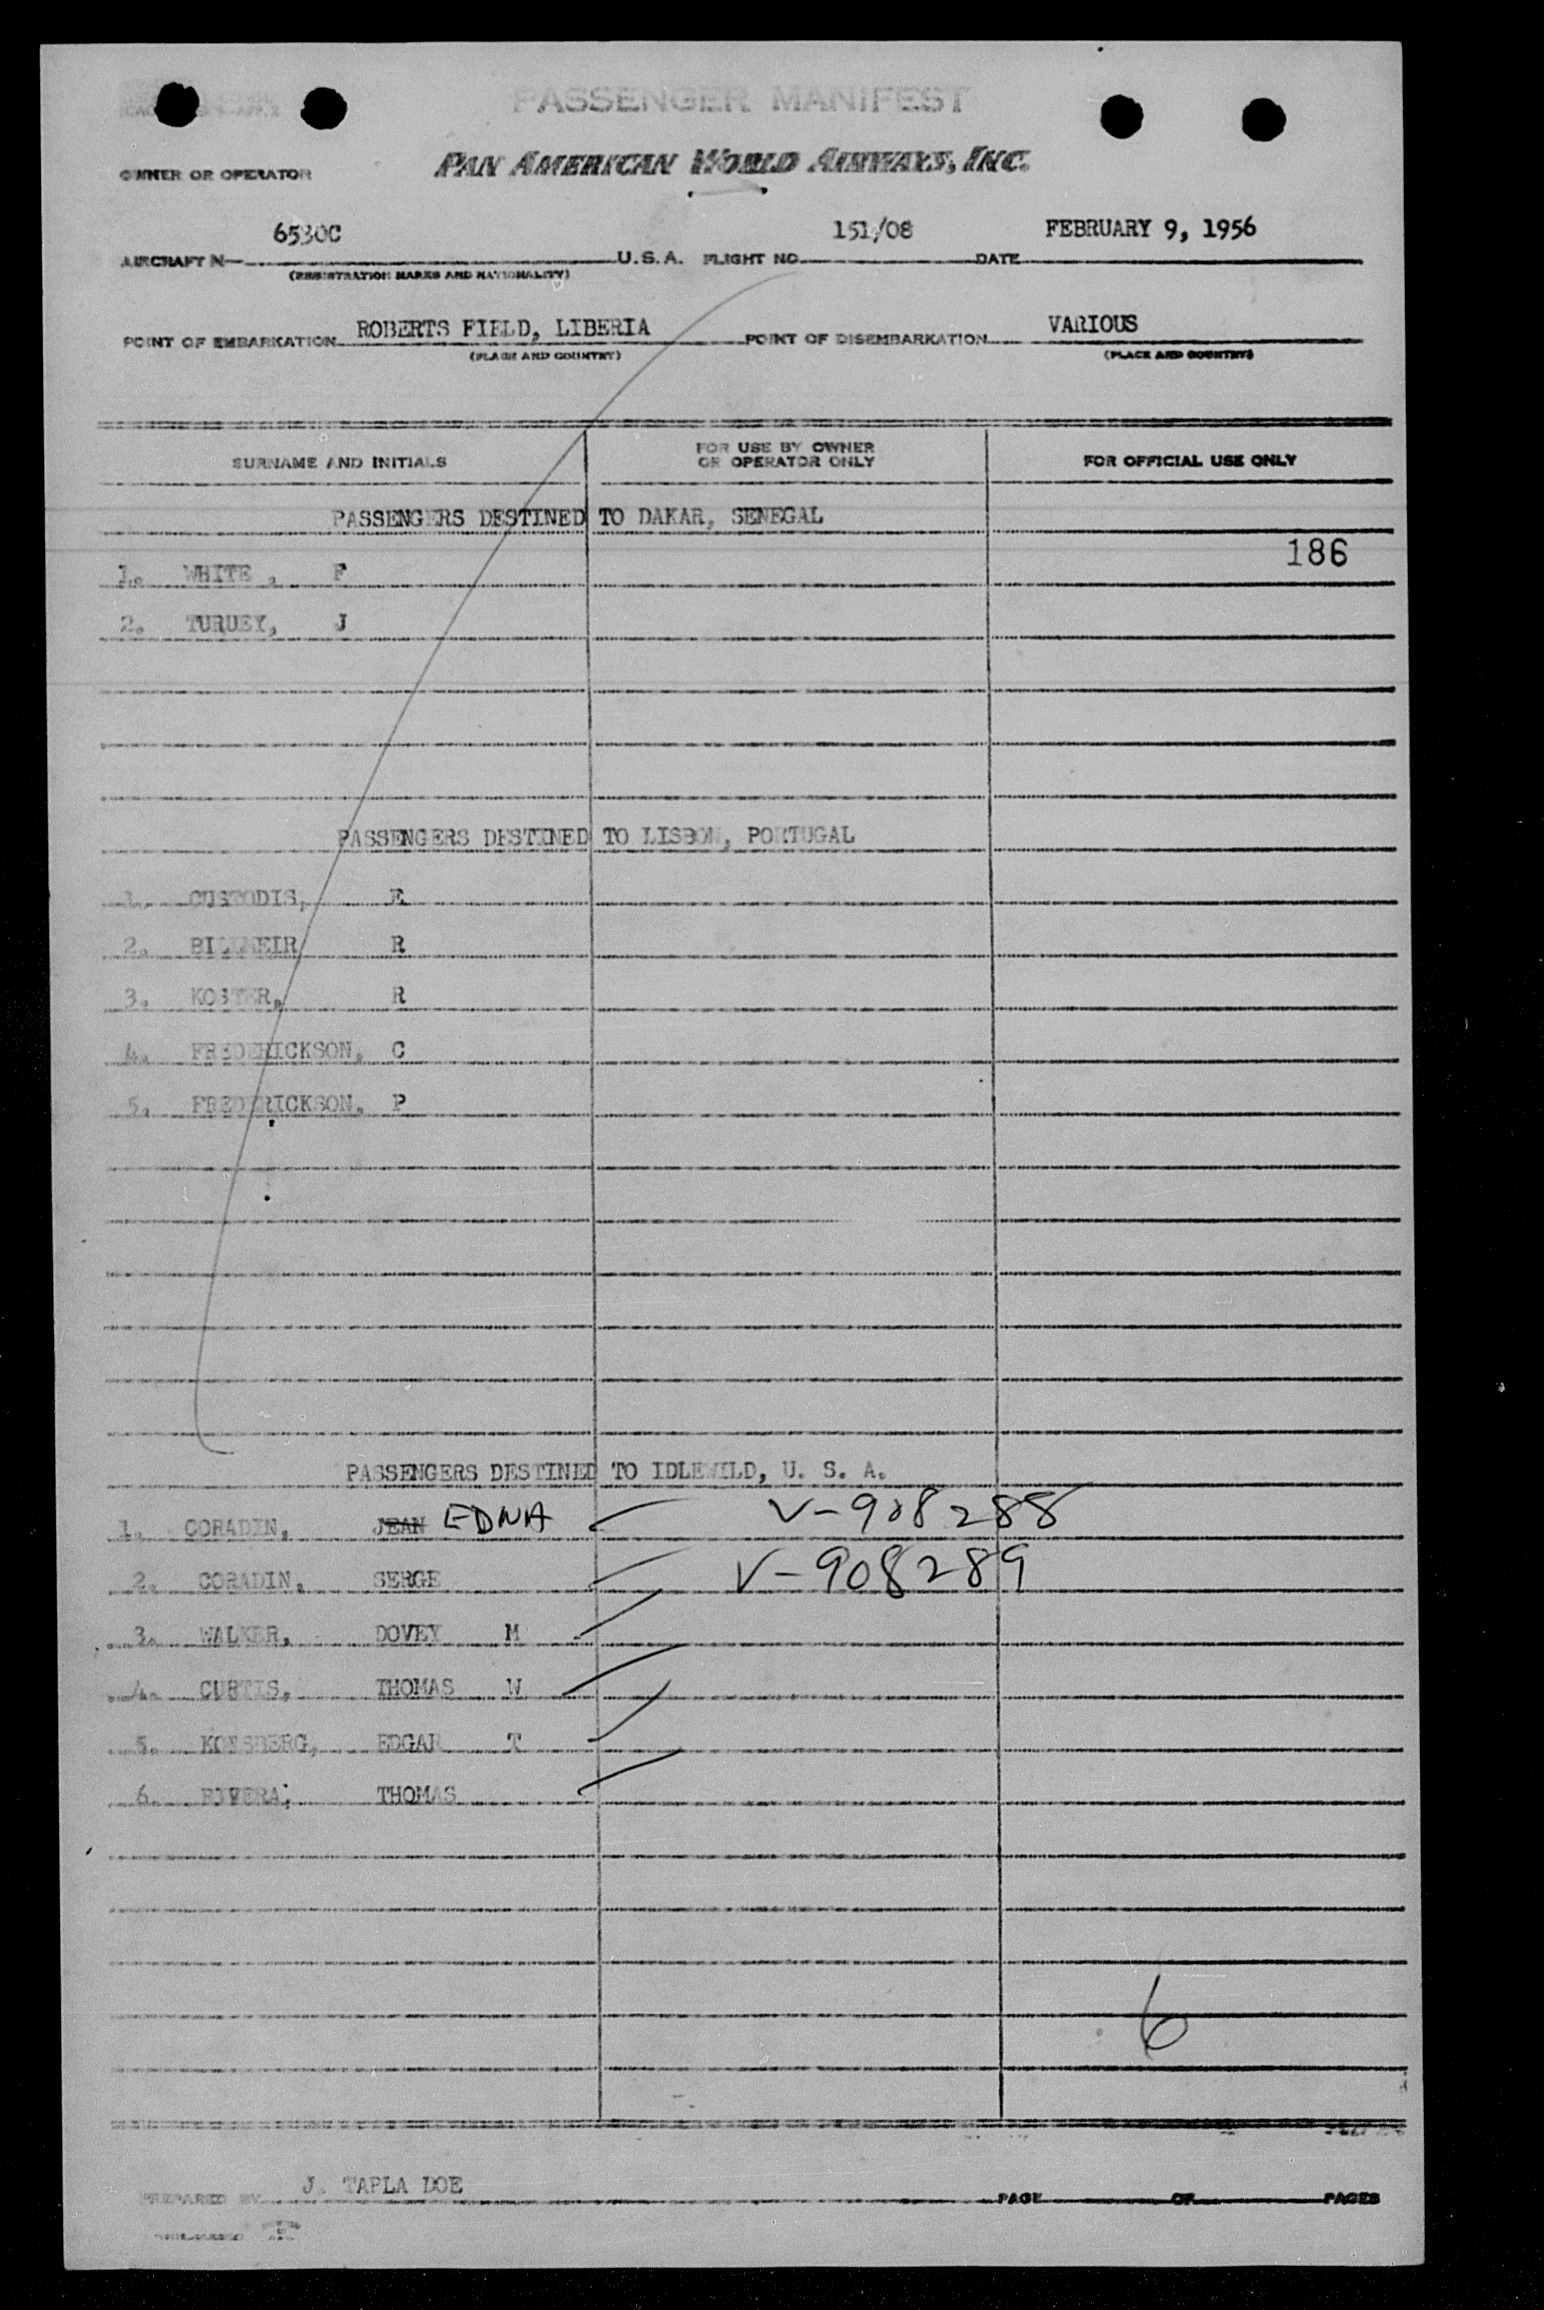 PASSENGER MANIFEST
OWNER OR OPERATOR PAN AMERICAN WORLD AIRWAYS, INC.
AIRCRAFT N— 6530C U.S.A. FLIGHT NO 151/08 DATE FEBRUARY 9, 1956
(REGISTRATION MARKS AND NATIONALITY)
POINT OF EMBARKATION ROBERTS FIELD, LIBERIA POINT OF DISEMBARKATION VARIOUS
(PLACE AND COUNTRY) (PLACE AND COUNTRY)
SURNAME AND INITIALS FOR USE BY OWNER OR OPERATOR ONLY FOR OFFICIAL USE ONLY
PASSENGERS DESTINED TO DAKAR, SENEGAL
186
1. WHITE , F
2. TURUEY, J
PASSENGERS DESTINED TO LISBON, PORTUGAL
1. CUSTODIS, E
2. R
3. KOSTER, R
4. FREDERICKSON, C
5. FREDERICKSON, P
PASSENGERS DESTINED TO IDLEWILD, U. S. A.
1. CORADIN, JEAN EDNA V-908288
2. CORADIN, SERGE V-908289
3. WALKER, DOVEY M
4. CURTIS, THOMAS W
5. KONSBERG, EDGAR T
6. RIVERA, THOMAS
6
PREPARED BY J. TAPLA DOE PAGE OF PAGES